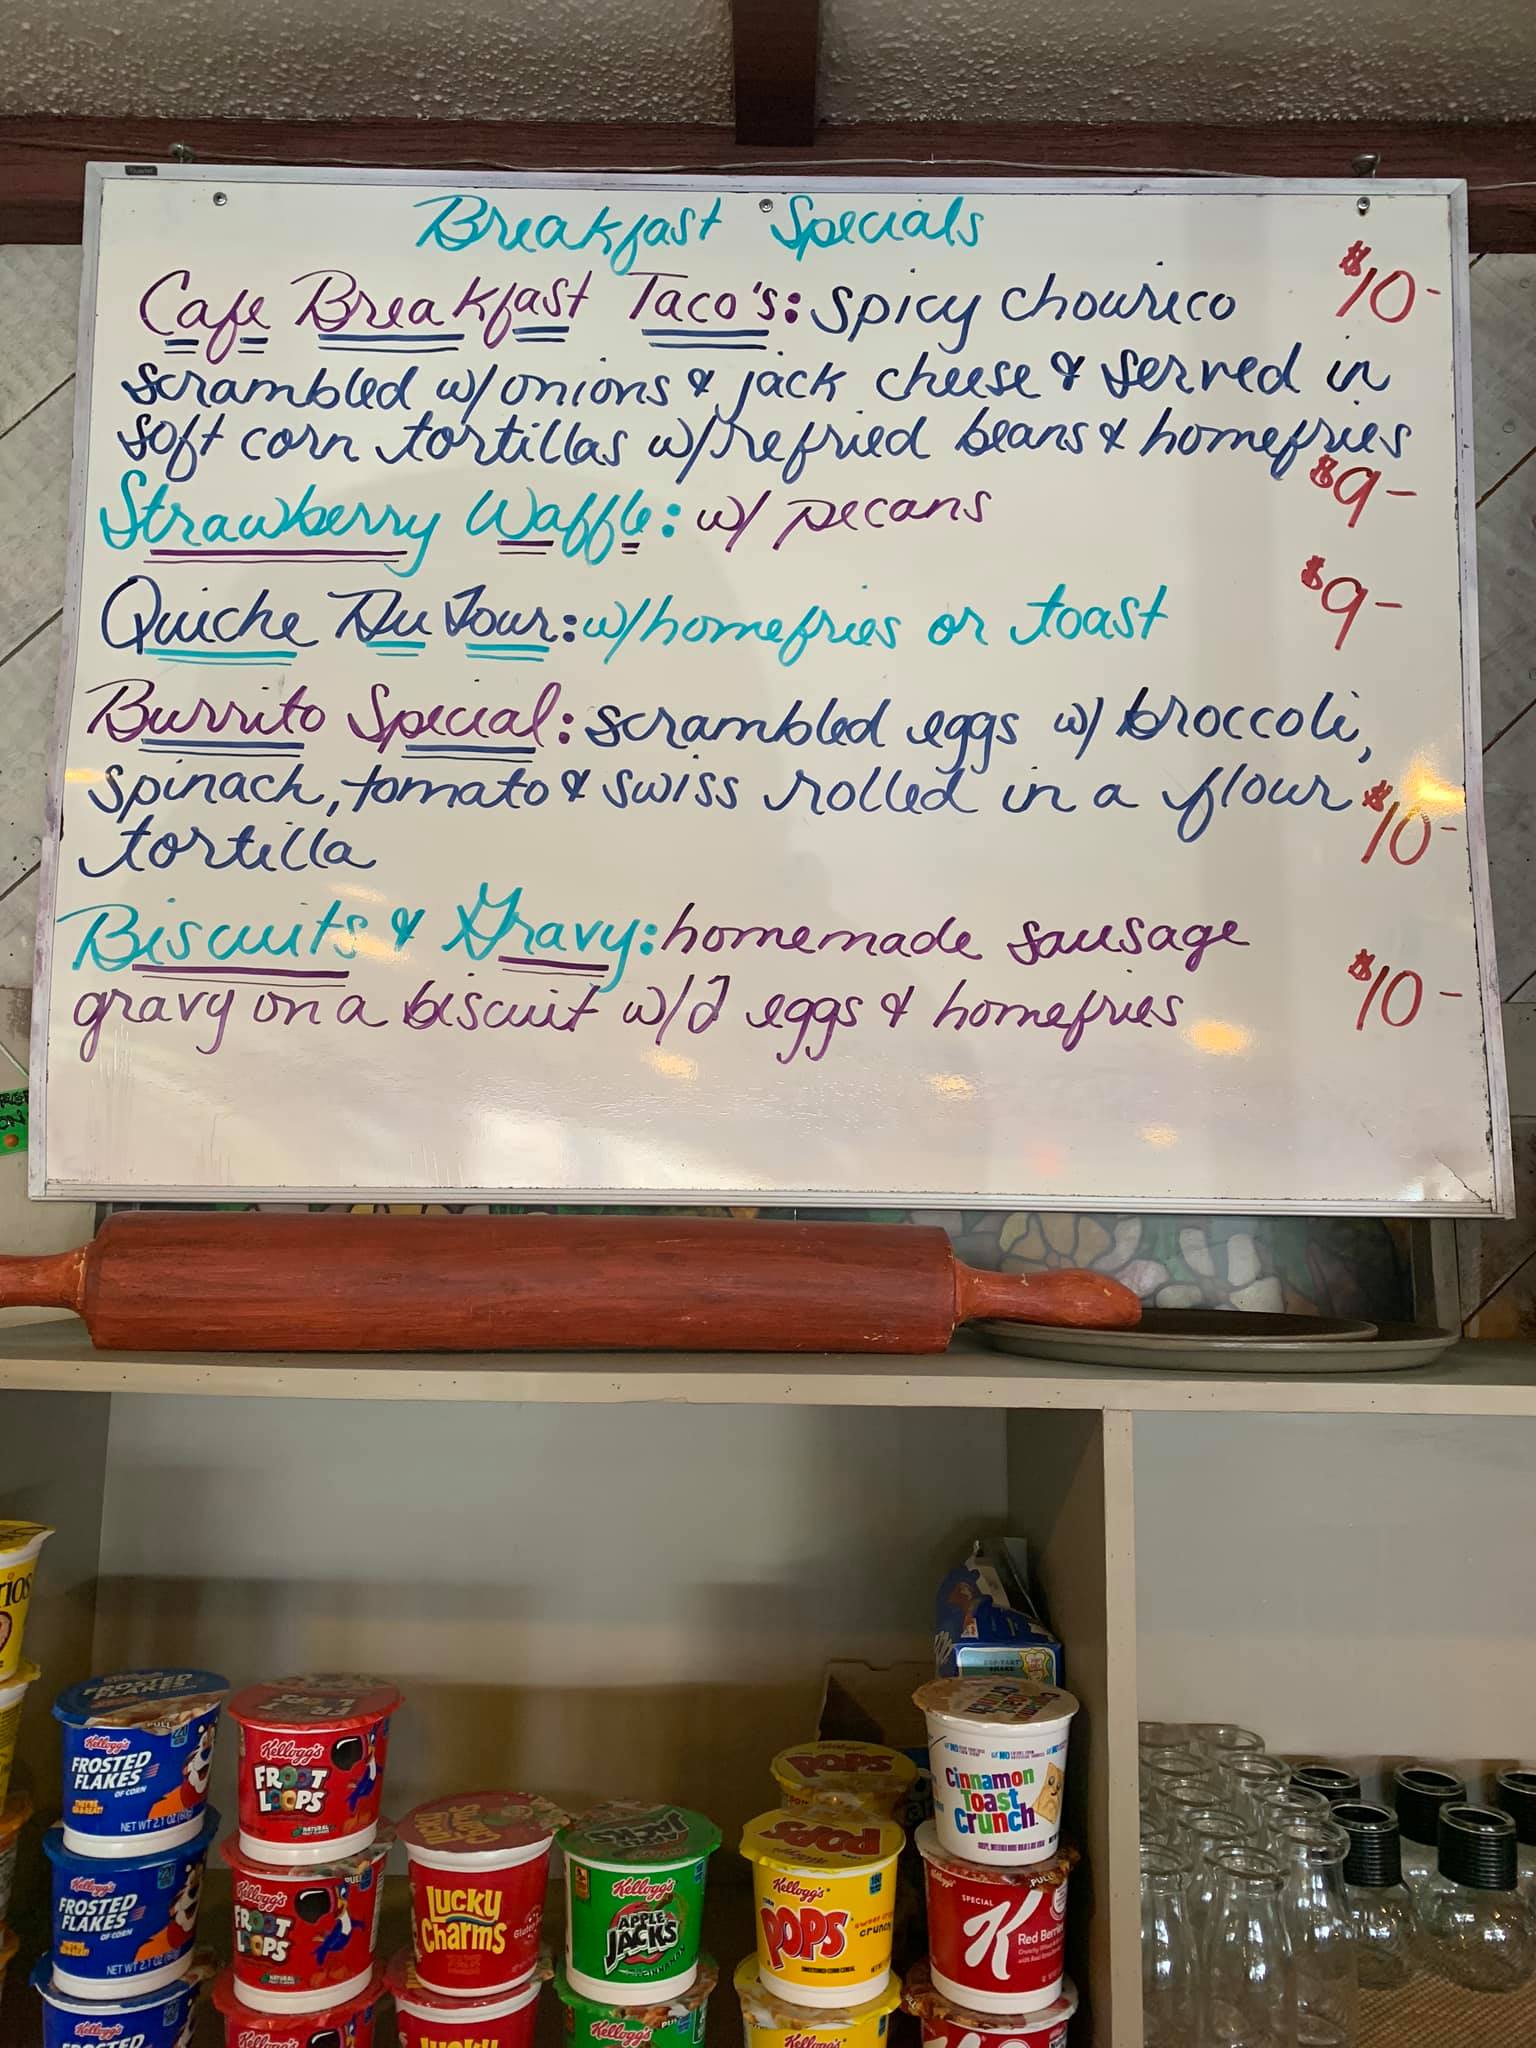 Breakfast Specials
Cafe Breakfast Taco's: spicy chourico $10-
scrambled w/onions & jack cheese & served in
soft corn tortillas w/refried beans & homefries
Strawberry Waffle: w/ pecans $9-
Quiche Du Jour: w/homefries or toast $9-
Burrito Special: scrambled eggs w/ broccoli,
spinach, tomato & swiss rolled in a flour $10-
tortilla
Biscuits & Gravy: homemade sausage
gravy on a biscuit w/2 eggs & homefries $10-
Kellogg's
FROSTED
FLAKES
OF CORN
NET WT 2.1 OZ
Kellogg's
FROOT
LOOPS
NATURAL
Lucky
Charms
Kellogg's
APPLE
JACKS
CINNAMON
POPS
Kellogg's
POPS
crunch
Cinnamon
Toast
Crunch
Kellogg's
FROSTED
FLAKES
OF CORN
NET WT 2.1 OZ
Kellogg's
FROOT
LOOPS
NATURAL
SPECIAL
K
Red Berries
Kellogg's
Kellogg's
Lucky
Kellogg's
Kellogg's